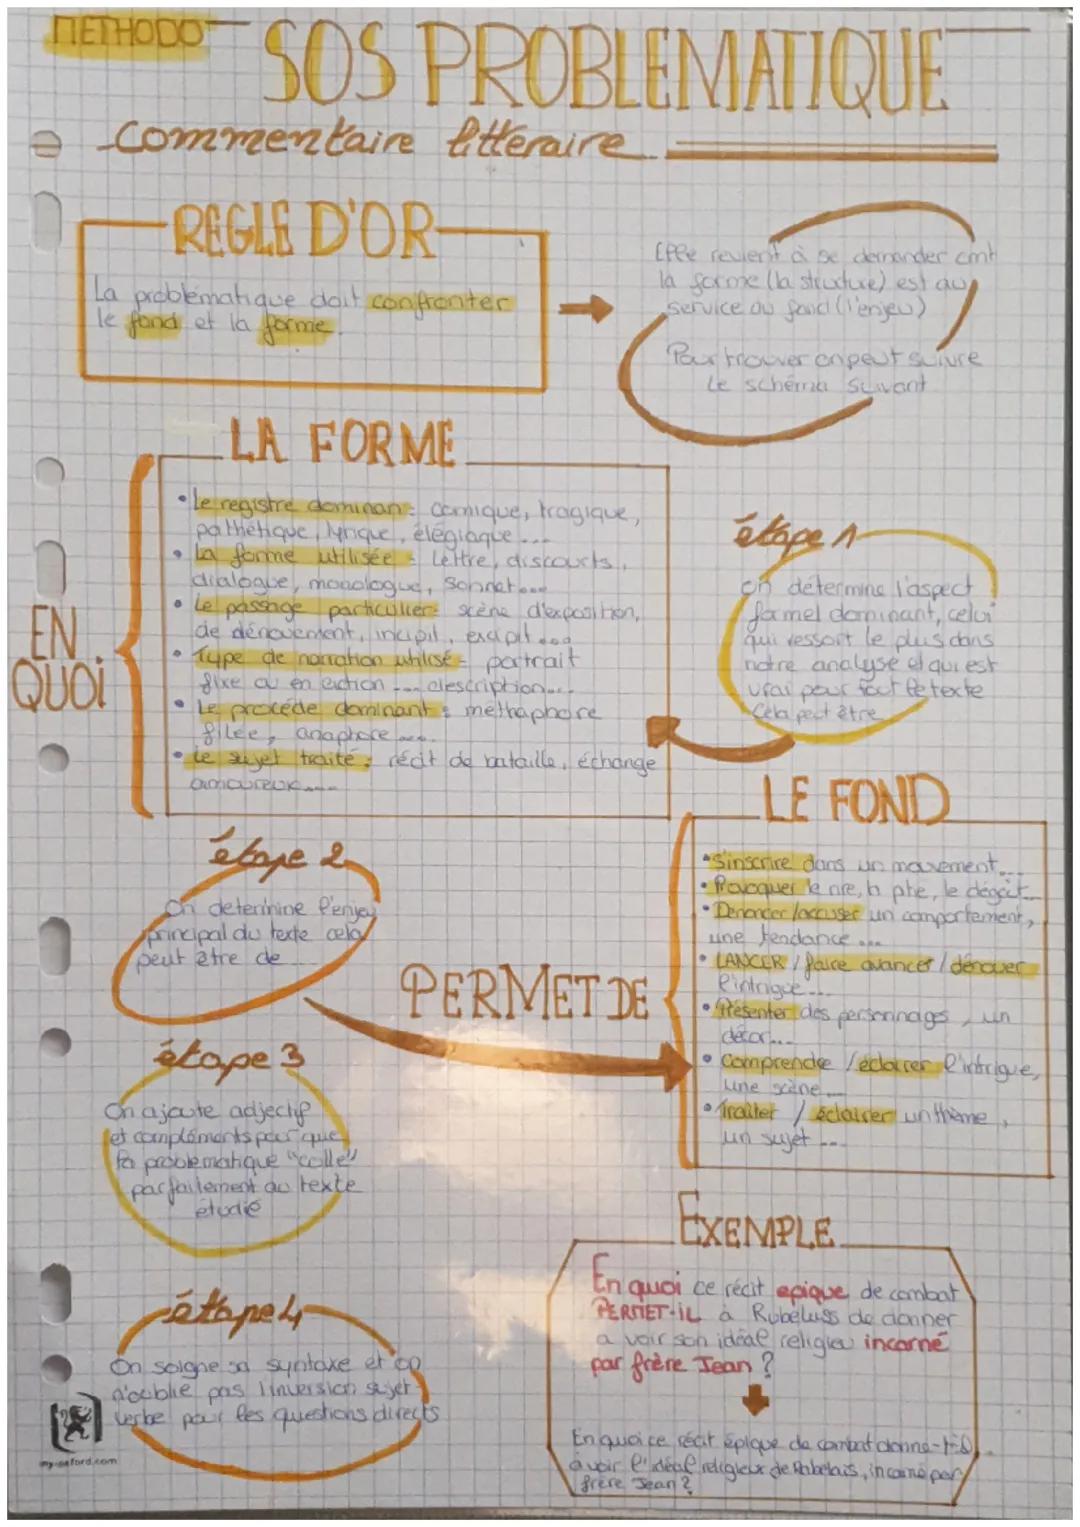 METHODO
SOS PROBLEMATIQUE
commentaire littéraire
REGLE D'OR
La problématique doit confronter
le fond et la forme.
Elle revient à se demander cmt
la forme (la structure) est au
service du fond (l'enjeu)
Pour trouver on peut suivre
le schéma suivant
LA FORME
EN
QUOI
• Le registre dominan : comique, tragique,
pathétique, lyrique, élégiaque...
• La forme utilisée : Lettre, discours,
dialogue, monologue, sonnet...
• Le passage particulier : scène d'exposition,
de dénouement, incipit, excipit...
• Type de narration utilisé : portrait
fixe ou en action ... description...
• Le procédé dominant : méthaphore
filée, anaphore ...
• Le sujet traité : récit de bataille, échange
amoureux....
étape 1
On détermine l'aspect
formel dominant, celui
qui ressort le plus dans
notre analyse et qui est
vrai pour tout le texte
Cela peut être
LE FOND
• S'inscrire dans un mouvement...
• Provoquer le rire, la pitié, le dégoût...
• Dénoncer/accuser un comportement,
une tendance ...
• LANCER / faire avancer / dénouer
l'intrigue...
• Présenter des personnages, un
décor...
• Comprendre / éclairer l'intrigue,
une scène...
• Traiter / éclairer un thème,
un sujet ...
étape 2
On determine l'enjeu
principal du texte cela
peut être de ...
PERMET DE
étape 3
On ajoute adjectif
et compléments pour que
la problematique "colle"
parfaitement au texte
étudié
étape 4
On soigne sa syntaxe et on
n'oublie pas l'inversion sujet
verbe pour les questions directs
my-oxford.com
EXEMPLE
En quoi ce récit epique de combat
PERMET-IL à Rabelais de donner
a voir son idéal religieu incarné
par frère Jean ?
En quoi ce récit épique de combat donne-t-il
à voir l'idéal religieux de Rabelais, incarné par
frère Jean ?